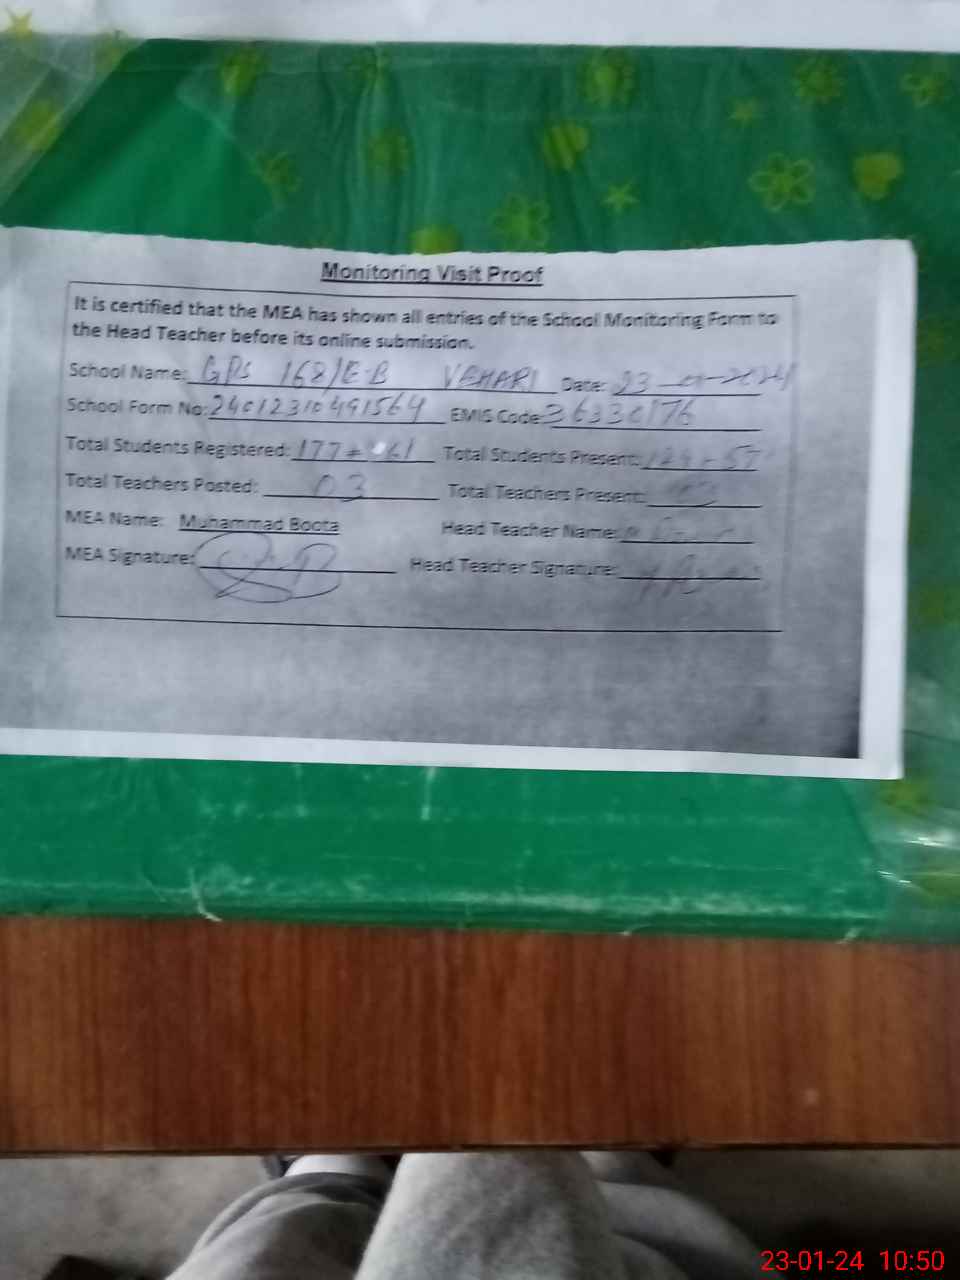 Monitoring Visit Proof
It is certified that the MEA has shown all entries of the School Monitoring Form to
the Head Teacher before its online submission.
School Name: GPS 168/E-B VEHARI Date: 23-01-2024
School Form No: 240123104 91564 EMIS Code: 36330176
Total Students Registered: 177 Total Students Present:
Total Teachers Posted: 03 Total Teachers Present:
MEA Name: Muhammad Boota Head Teacher Name:
MEA Signature: Head Teacher Signature:
23-01-24 10:50